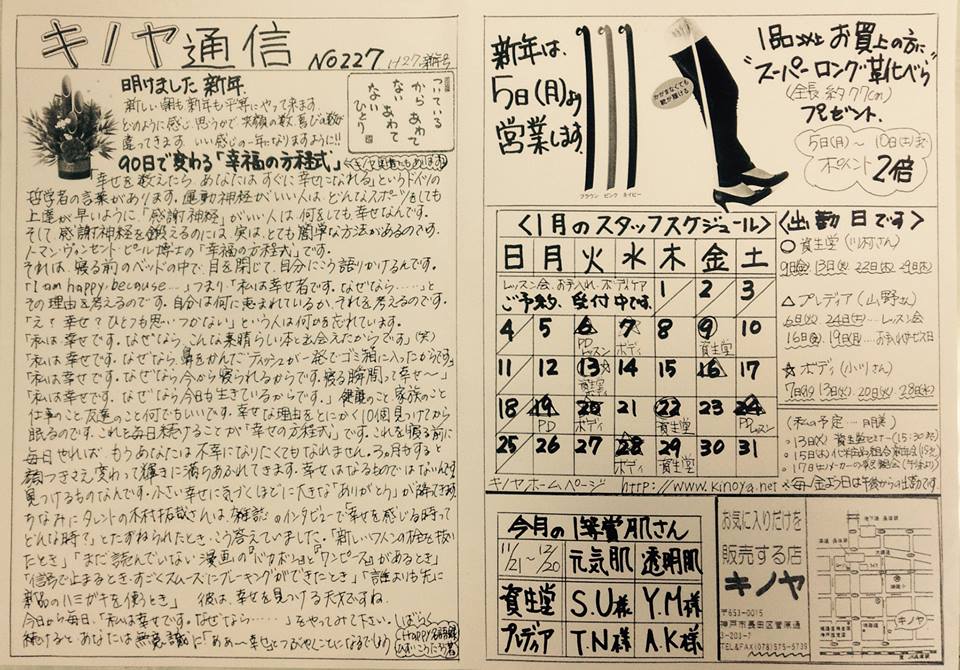 キノヤ通信
No227
H27.新年号
明けました 新年。
新しい朝も新年も平等にやって来ます。
どのように感じ、思うかで笑顔の数、喜びの数が
違ってきます。いい感じの一年になりますように!!
ついている
からあわて
ないあわて
ないひとり
90日で変わる「幸福の方程式」
「幸せを数えたら、あなたはすぐに幸せになれる」というドイツの
哲学者の言葉があります。運動神経がいい人は、どんなスポーツをしても
上達が早いように、「感謝神経」がいい人は何をしても幸せなんです。
そして感謝神経を鍛えるのには、実は、とても簡単な方法があるのです。
ノーマン・ヴィンセント・ピール博士の「幸福の方程式」です。
それは、寝る前のベッドの中で、目を閉じて、自分にこう語りかけるんです。
「I am happy because…」つまり「私は幸せ者です。なぜなら……」と
その理由を考えるのです。自分は何に恵まれているか、それを考えるのです。
「え?幸せ?ひとつも思いつかない」という人は何かを忘れています。
「私は幸せです。なぜなら、こんな素晴らしい本と出会えたからです」(笑)
「私は幸せです。なぜなら、鼻をかんだティッシュが一発でゴミ箱に入ったからです」
「私は幸せです。なぜなら今から寝られるからです。寝る瞬間って幸せ〜」
「私は幸せです。なぜなら今日も生きているからです。」健康のこと、家族のこと
仕事のこと、友達のこと何でもいいです。幸せな理由をとにかく10個見つけてから
眠るのです。これを毎日続けることが「幸せの方程式」です。これを寝る前に
毎日やれば、もうあなたは不幸になりたくてもなれません。3ヵ月すると
顔つきさえ変わって輝きに満ちあふれてきます。幸せはなるものではないんです。
見つけるものなんです。小さい幸せに気づくほどに大きな「ありがとう」が
ちなみにタレントの木村拓哉さんは、雑誌のインタビューで「幸せを感じる時って
どんな時?」とたずねられたとき、こう答えていました。「新しいワインの栓を抜い
たとき」「まだ読んでいない漫画の『バカボンド』『ワンピース』があるとき」
「信号で止まるとき、すごくスムーズにブレーキングができたとき」「誰よりも先に
新品のハミガキを使うとき」 彼は、幸せを見つける天才ですね。
今日から毎日、「私は幸せです。なぜなら……」をやってみて下さい。しばらく
続けると、あなたは無意識に「ああ〜幸せ」とつぶやくことになるでしょう
新年は、
5日(月)より
営業します。
かがまなくても
靴が履ける
ブラウン ピンク ネイビー
1品以上お買上の方に
"スーパーロング靴べら"
(全長約77cm)
プレゼント。
5日(月)〜10日(土)まで
ポイント2倍
〈1月のスタッフスケジュール〉
日 月 火 水 木 金 土
レッスン会、お手入れ、ボディケア
ご予約、受付中です。
1 2 3
4 5 6 7 8 9 10
PDレッスン ボディ 資生堂
11 12 13 14 15 16 17
資生堂
18 19 20 21 22 23 24
PD ボディ 資生堂 PDレッスン
25 26 27 28 29 30 31
ボディ 資生堂
キノヤホームページ http://www.kinoya.net
〈出勤日です〉
○資生堂(川村さん)
9日(金) 13日(火) 22日(木) 29日(木)
△プレディア(山野さん)
6日(火)、24日(土)…レッスン会
16日(金)、19日(月)…お手入れサービス日
☆ボディ(小川さん)
7日(水) 13日(火) 20日(火) 28日(水)
○13日(火) 資生堂セミナー(15:30迄)
※毎/金よう日は午後からの出勤です。
今月の1等賞肌さん
11/21〜12/20 元気肌 透明肌
資生堂 S.U様 Y.M様
プレディア T.N様 A.K様
お気に入りだけを
販売する店
キノヤ
〒653-0015
神戸市長田区菅原通
3-203-7
TEL&FAX(078)575-5739
キノヤ